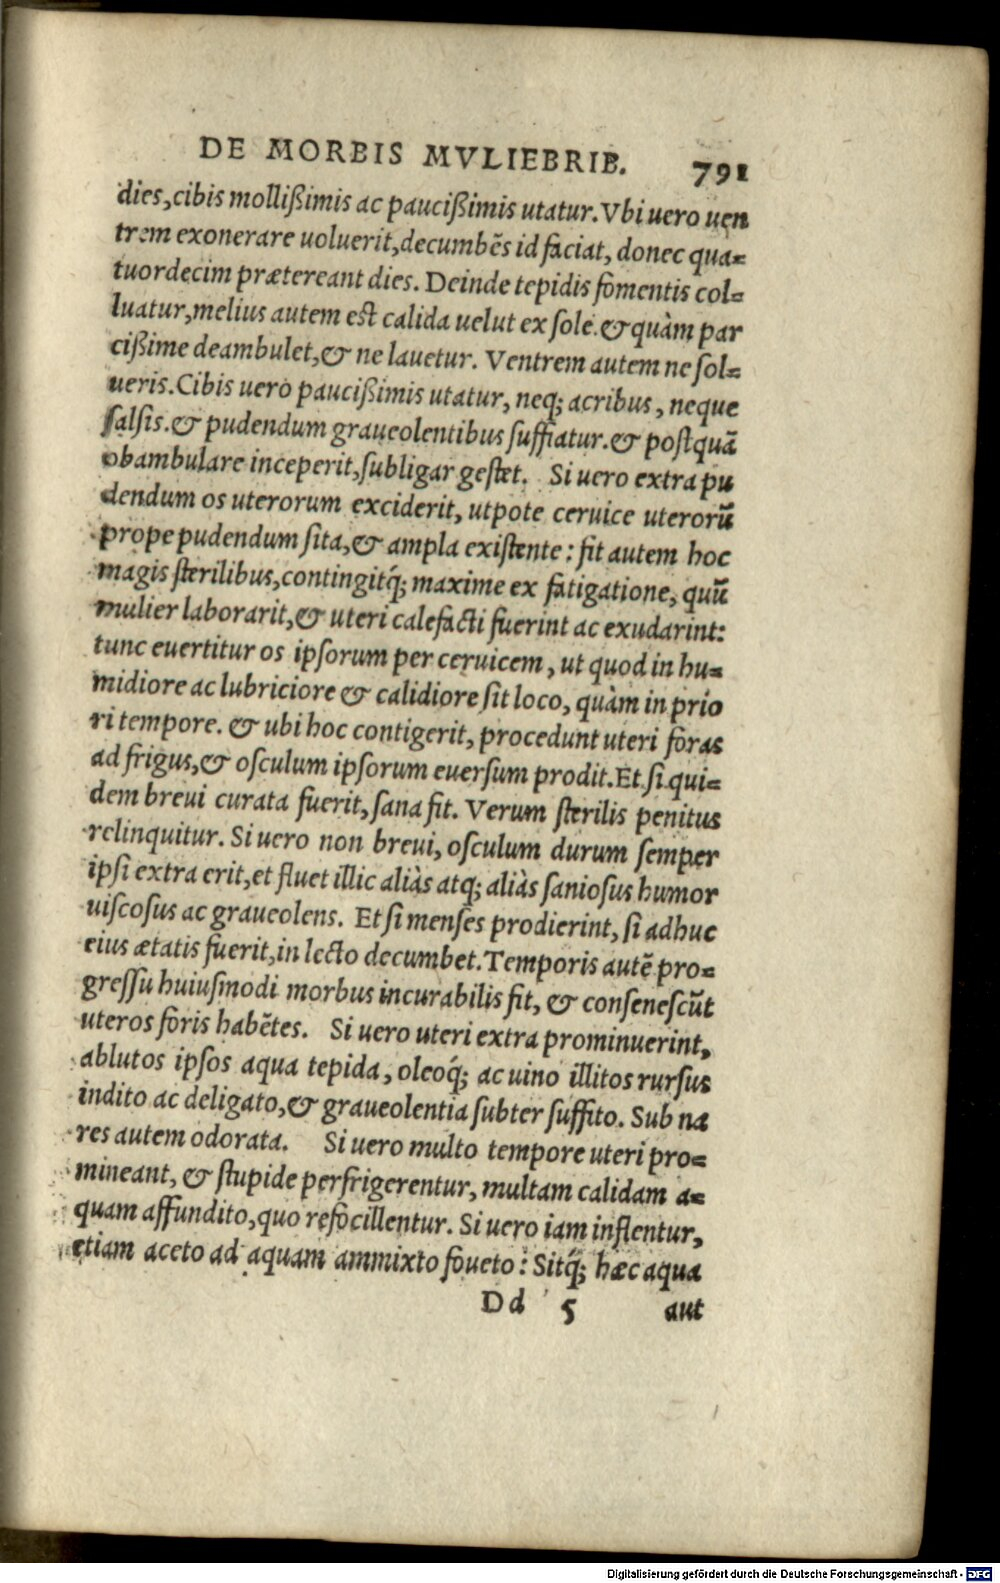 DE MORBIS MVLIEBRIB. 791
dies, cibis mollißimis ac paucißimis utatur. Vbi uero uen
trem exonerare uoluerit, decumbẽs id faciat, donec qua=
tuordecim prætereant dies. Deinde tepidis fomentis col=
luatur, melius autem est calida uelut ex sole. & quàm par
cißime deambulet, & ne lauetur. Ventrem autem ne sol=
ueris. Cibis uero paucißimis utatur, neq; acribus, neque
salsis. & pudendum graueolentibus suffiatur. & postquã
obambulare inceperit, subligar gestet. Si uero extra pu
dendum os uterorum exciderit, utpote ceruice uterorũ
prope pudendum sita, & ampla existente: fit autem hoc
magis sterilibus, contingitq́; maxime ex fatigatione, quũ
mulier laborarit, & uteri calefacti fuerint ac exudarint:
tunc euertitur os ipsorum per ceruicem, ut quod in hu=
midiore ac lubriciore & calidiore sit loco, quàm in prio
ri tempore. & ubi hoc contigerit, procedunt uteri foras
ad frigus, & osculum ipsorum euersum prodit. Et si qui=
dem breui curata fuerit, sana fit. Verum sterilis penitus
relinquitur. Si uero non breui, osculum durum semper
ipsi extra erit, et fluet illic aliàs atq; aliàs saniosus humor
uiscosus ac graueolens. Et si menses prodierint, si adhuc
eius ætatis fuerit, in lecto decumbet. Temporis autẽ pro=
gressu huiusmodi morbus incurabilis fit, & consenescũt
uteros foris habẽtes. Si uero uteri extra prominuerint,
ablutos ipsos aqua tepida, oleoq́; ac uino illitos rursus
indito ac deligato, & graueolentia subter suffito. Sub na
res autem odorata. Si uero multo tempore uteri pro=
mineant, & stupide perfrigerentur, multam calidam a=
quam affundito, quo refocillentur. Si uero iam inflentur,
etiam aceto ad aquam ammixto foueto: Sitq́; hæc aqua
Dd 5 aut
Digitalisierung gefördert durch die Deutsche Forschungsgemeinschaft - DFG